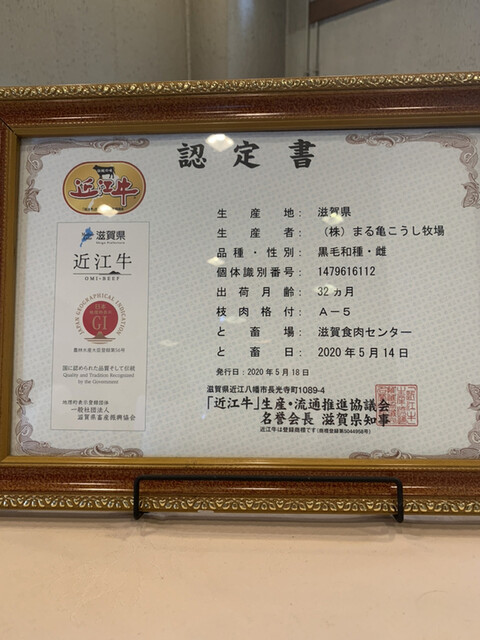 認定書
近江牛
滋賀県
Shiga Prefecture
近江牛
OMI-BEEF
JAPAN GEOGRAPHICAL INDICATION
日本
地理的表示
GI
農林水産大臣登録第56号
国に認められた品質そして伝統
Quality and Tradition Recognized
by the Government
地理的表示登録団体
一般社団法人
滋賀県畜産振興協会
生産地: 滋賀県
生産者: (株)まる亀こうし牧場
品種・性別: 黒毛和種・雌
個体識別番号: 1479616112
出荷月齢: 32ヵ月
枝肉格付: A-5
と畜場: 滋賀食肉センター
と畜日: 2020年5月14日
発行日:2020年5月18日
滋賀県近江八幡市長光寺町1089-4
「近江牛」生産・流通推進協議会
名誉会長 滋賀県知事
近江牛は登録商標です(商標登録第5044958号)